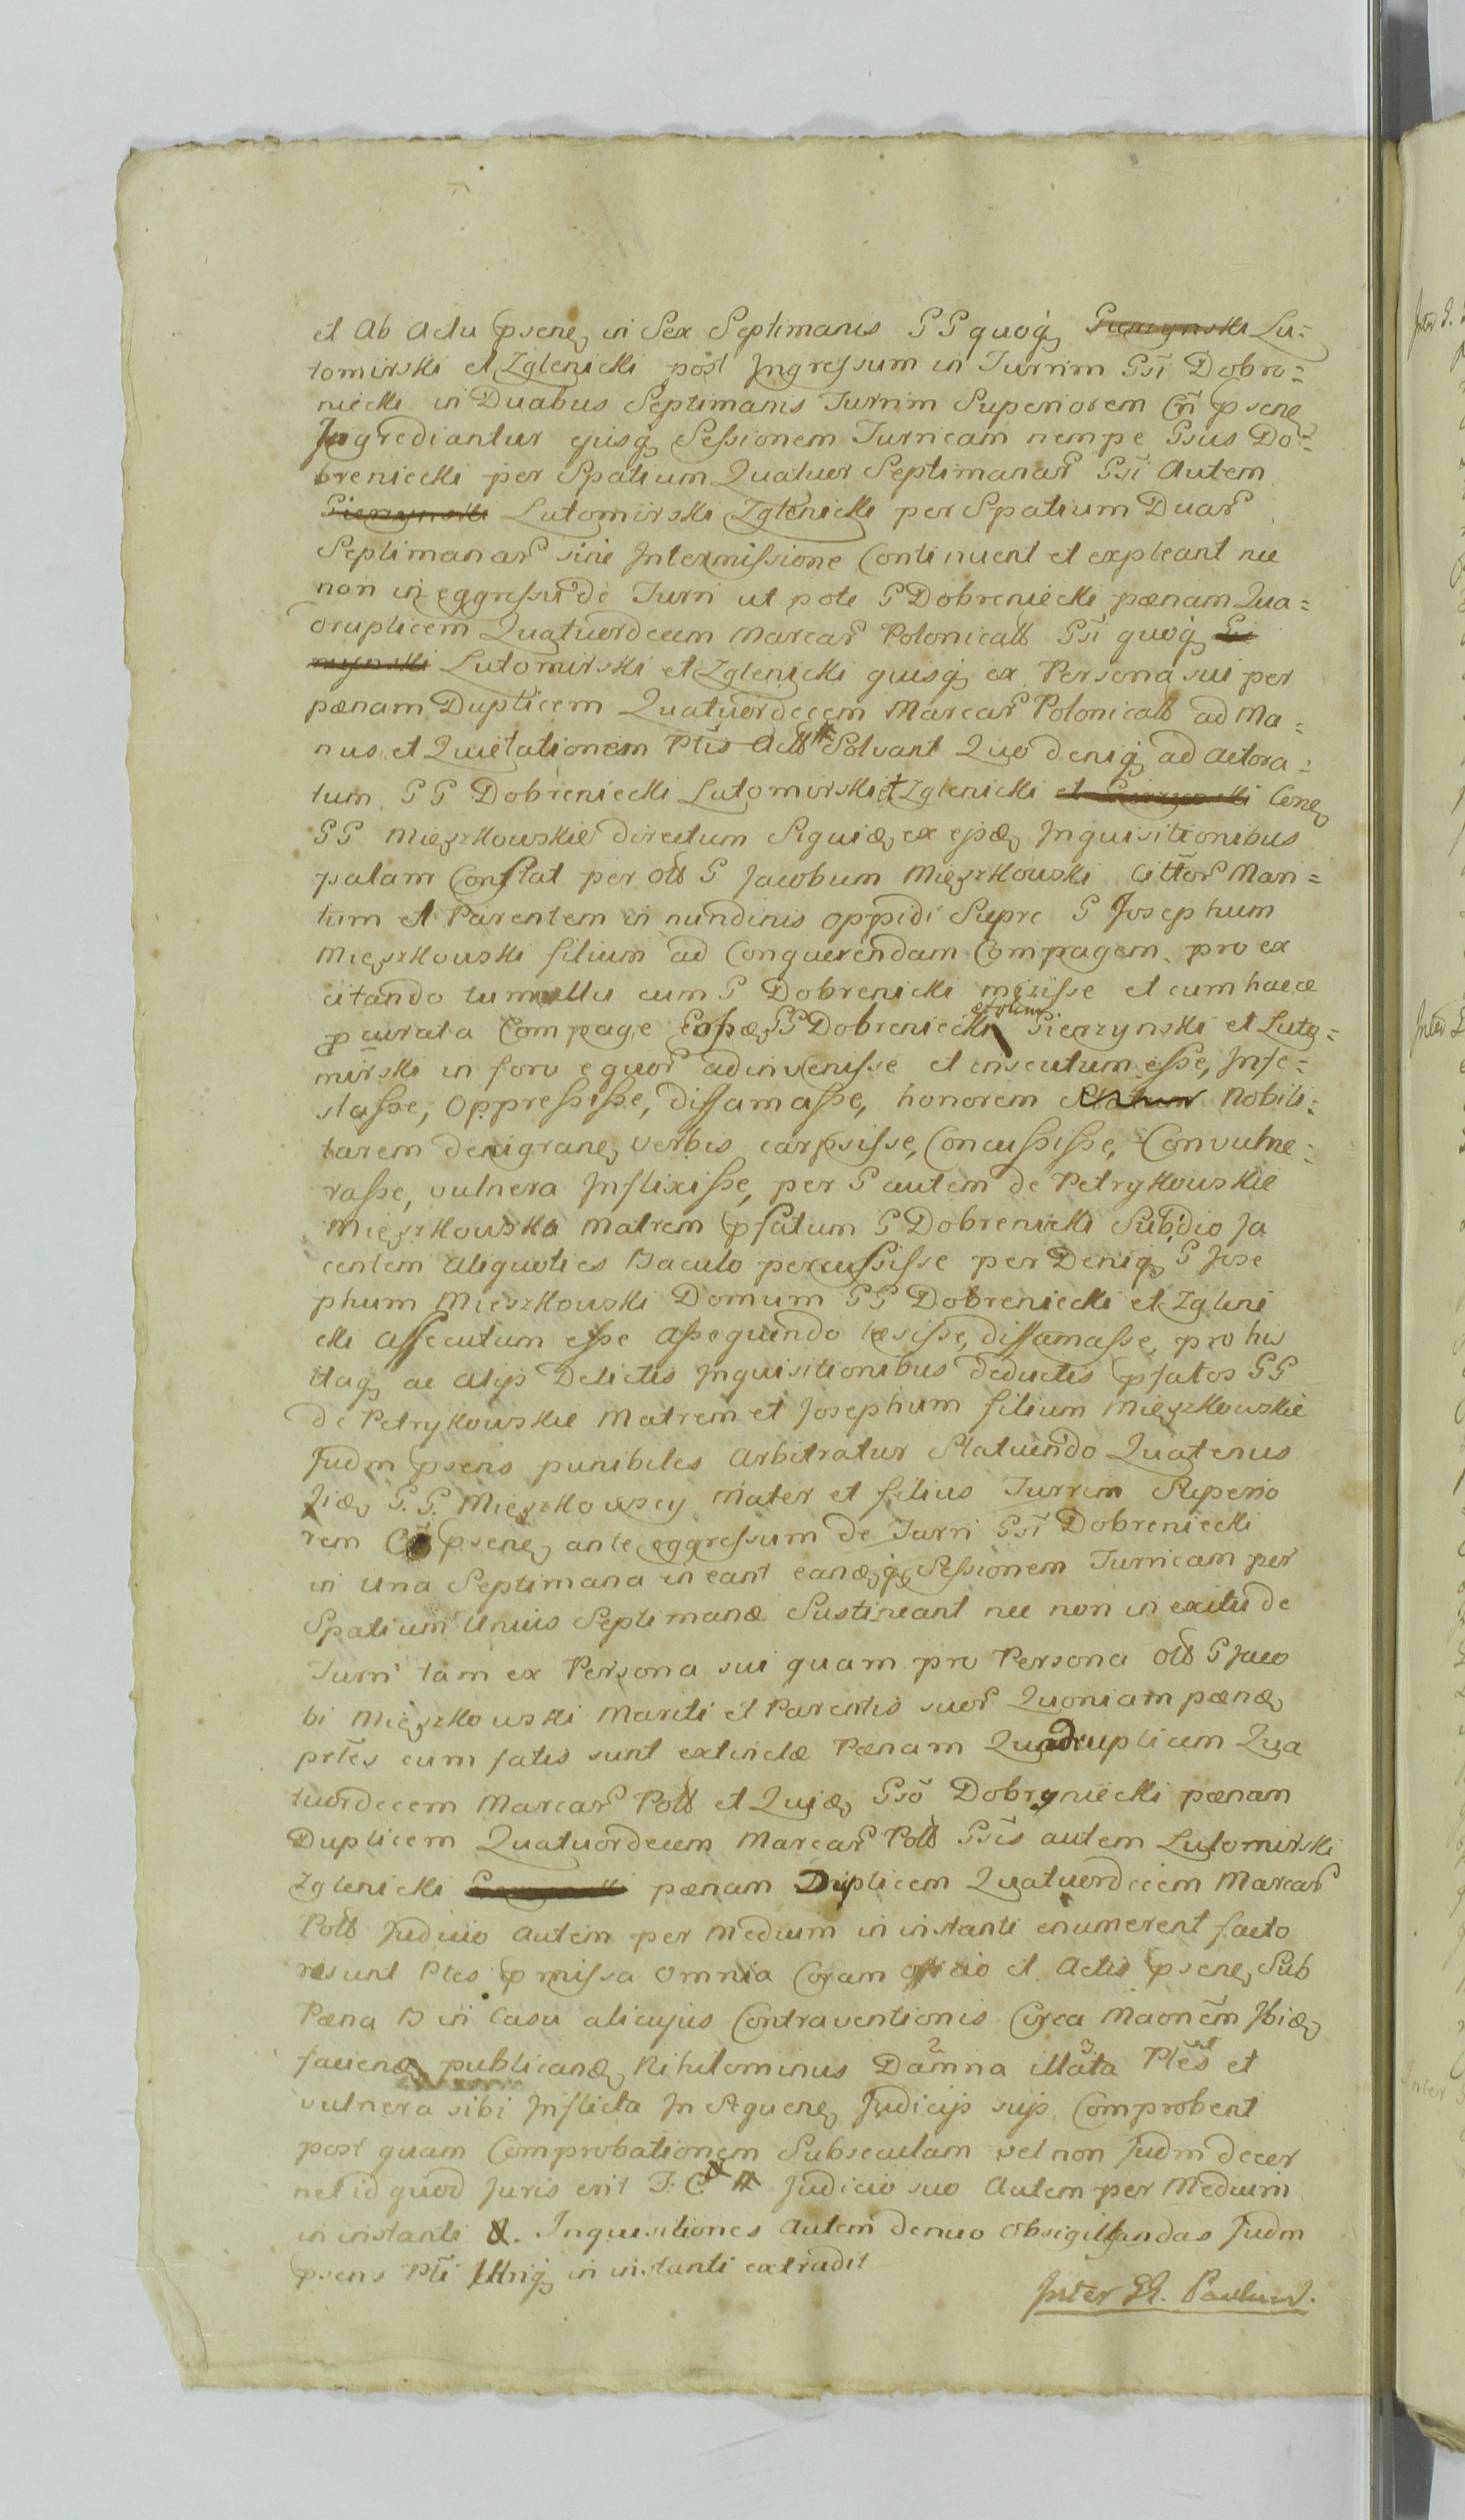 et ab actu psene in Sex Septimanis GG quoq Gierzynski Lu=
tomirski et Zglenicki post Ingressum in Turrim Gsi Dobre=
niecki in Duabus Septimanis Turrim Superiorem Cri psene
Ingrediantur ejusq Sessionem Turricam nempe Gsus Do=
breniecki per Spatium Quatuor Septimanar Gsi autem
Gierzynski Lutomirski Zglenicki per Spatium Duar
Septimanar sine Intermissione Continuent et expleant nec
non in eggressu de Turri ut pote G Dobreniecki pænam Qua=
druplicem Quatuordecem Marcar Polonicall Gsi quoq Gi
rzynski Lutomirski et Zglenicki quisq ex Persona sui per
pænam Duplicem Quatuordecem Marcar Polonicall ad Ma=
nus et Quietationem Ptis Actt Solvant Quo deniq ad actora=
tum GG Dobreniecki Lutomirski et Zglenicki et Gierzynski Cone
GG Mieszkowskie directum Siquid ex ejsd Inquisitionibus
palam Constat per oll G Jacobum Mieszkowski Citttor Mari=
tum et Parentem in nundinis oppidi Supre G Josephum
Mieszkowski filium ad Conquerendam Compagem pro ex
citando tumultu cum G Dobrenicki misisse et cum haece
pcurata Compage GG Dobreniecki actum Gierzynski et Luto=
mirski in foro equor adinvenisse et insecutum esse, Infe=
stasse, oppressisse, diffamasse, honorem Statum Nobili=
tarem denigrane verbis carpsisse, Concussisse, Convulne=
rasse, vulnera Inflixisse, per G autem de Petrykowskie
Mieszkowska Matrem pfatum G Dobrenicki Subidio Ja
centem aliquoties Baculo percussisse per Deniq G Jose
phum Mieszkowski Domum GG Dobreniecki et Zgleni
cki assecutum esse assequendo læsisse, diffamasse, pro his
itaq ac alijs Delictis Inquisitionibus deductis pfatos GG
de Petrykowskie Matrem et Josephum filium Mieszkowskie
Judm psens punibiles arbitratur Statuendo Quatenus
Jid G.G. Mieszkowscy Mater et filius Turrim Superio
rem Cri psene ante eggressum de Turri Gsi Dobreniecki
in una Septimana ineant eandq Sessionem Turricam per
Spatium Unius Septimanæ Sustineant nec non in exitu de
Turri tam ex Persona sui quam pro Persona oll G Jaco
bi Mieszkowski Mariti et Parentis suor Quoniam pænæ
prtes cum fatis sunt extinctæ Pænam Quadruplicem Qua
tuordecem Marcar Poll et Quid Gso Dobryniecki pænam
Duplicem Quatuordecem Marcar Poll Gsis autem Lutomirski
Zglenicki Gierzynski pænam Duplicem Quatuordecem Marcar
Poll Judicio autem per Medium in instanti enumerent facto
resunt Ptes pmissa omnia Coram officio et Actis psene Sub
Pæna B in Casu alicujus Contraventionis Circa Maonem Ibid
faciend publicand Nihilominus Damna illata Ptes et
vulnera sibi Inflicta In Sequene Judicijs sujs Comprobent
post quam Comprobationem Subsecutam vel non Judm decer
net id quod Juris erit Judicio suo autem per Medium
in instanti &. Inquisitiones autem denuo obsigillandas Judm
psens Pti Utriq in instanti extradit
Inter GG. Paulum.